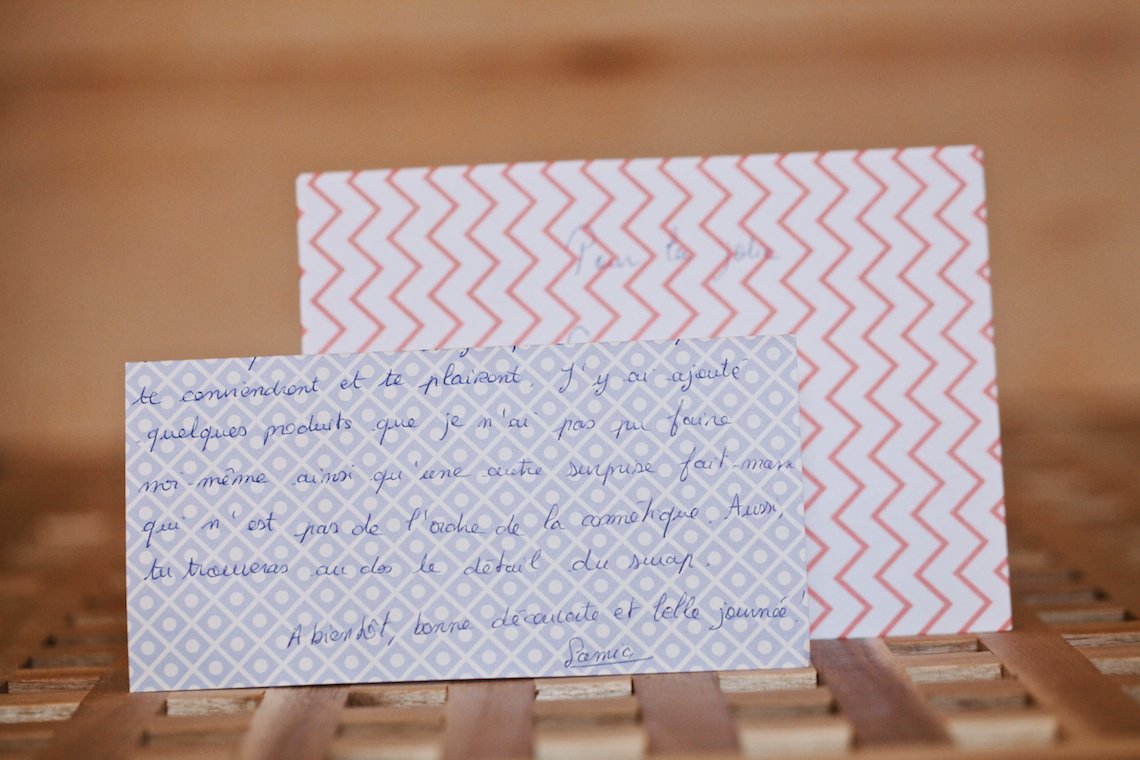 Pour la jolie
te conviendront et te plairont. J'y ai ajouté
quelques produits que je n'ai pas pu faire
moi-même ainsi qu'une autre surprise fait-main
qui n'est pas de l'ordre de la cosmétique. Aussi,
tu trouveras au dos le détail du swap.
A bientôt, bonne découverte et belle journée!
Samia